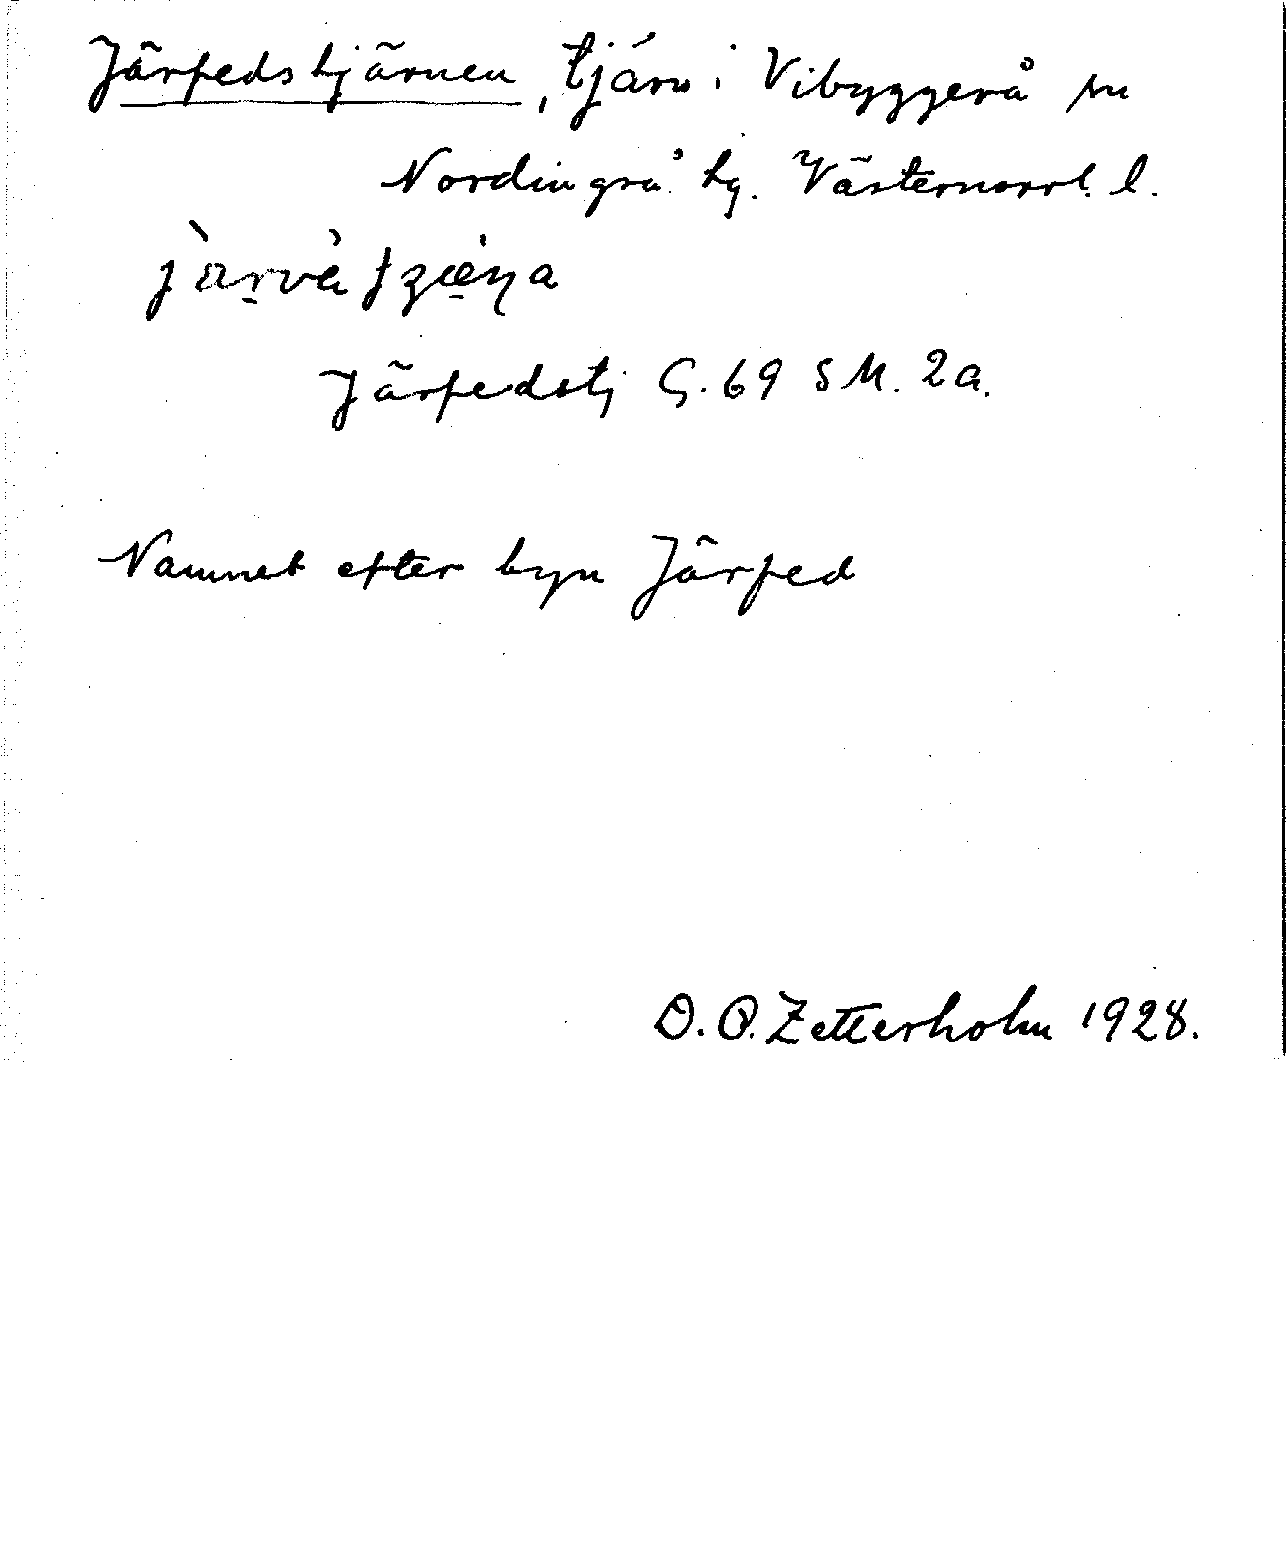 Järfedstjärnen, tjärn i Vibyggerå sn
Nordingrå tg. Västernorrl. l.
Järfedstj G. 69 S M. 2a.
Namnet efter byn Järfed
D. O. Zetterholm 1928.